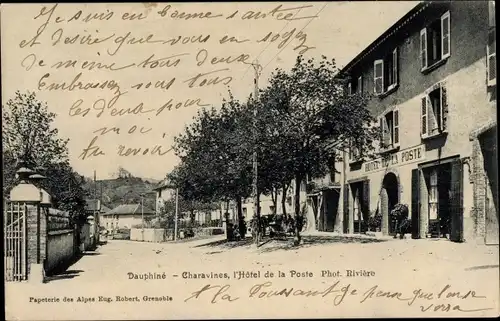 Je suis en bonne santée
et desire que vous en soyez
de meme tous deux
Embrassez vous tous
les deux pour
moi
au revoir
HÔTEL DE LA POSTE
Dauphiné - Charavines, l'Hôtel de la Poste Phot. Rivière
Papeterie des Alpes Eug. Robert, Grenoble
a la Toussant je pense que l'on se
verra